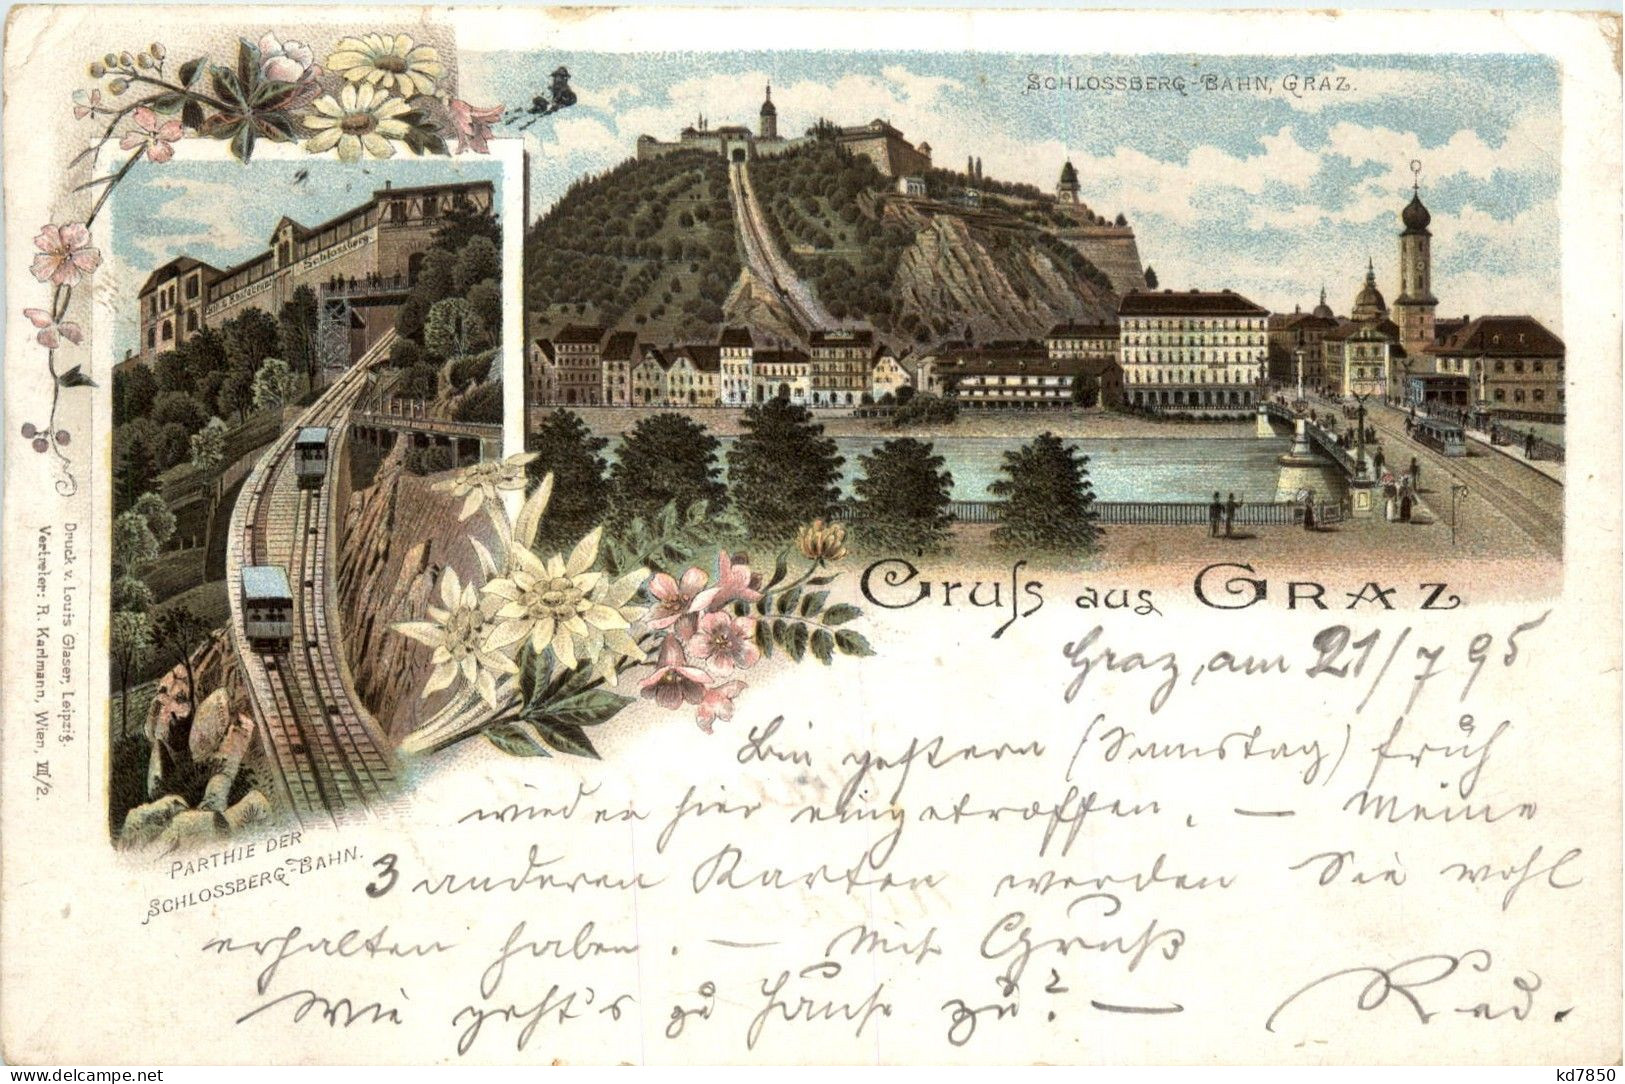 SCHLOSSBERG-BAHN, GRAZ.
Schlossberg.
Gruss aus GRAZ
Graz, am 21/7 95
Bin gestern (Samstag) früh
wieder hier eingetroffen. — Meine
3 anderen Karten werden Sie wohl
erhalten haben. — Mit Gruß
Wie geht's zu Hause zu? —
PARTHIE DER
SCHLOSSBERG-BAHN.
Druck v. Louis Glaser, Leipzig.
Vertreter: R. Karlmann, Wien, VII/2.
kd7850